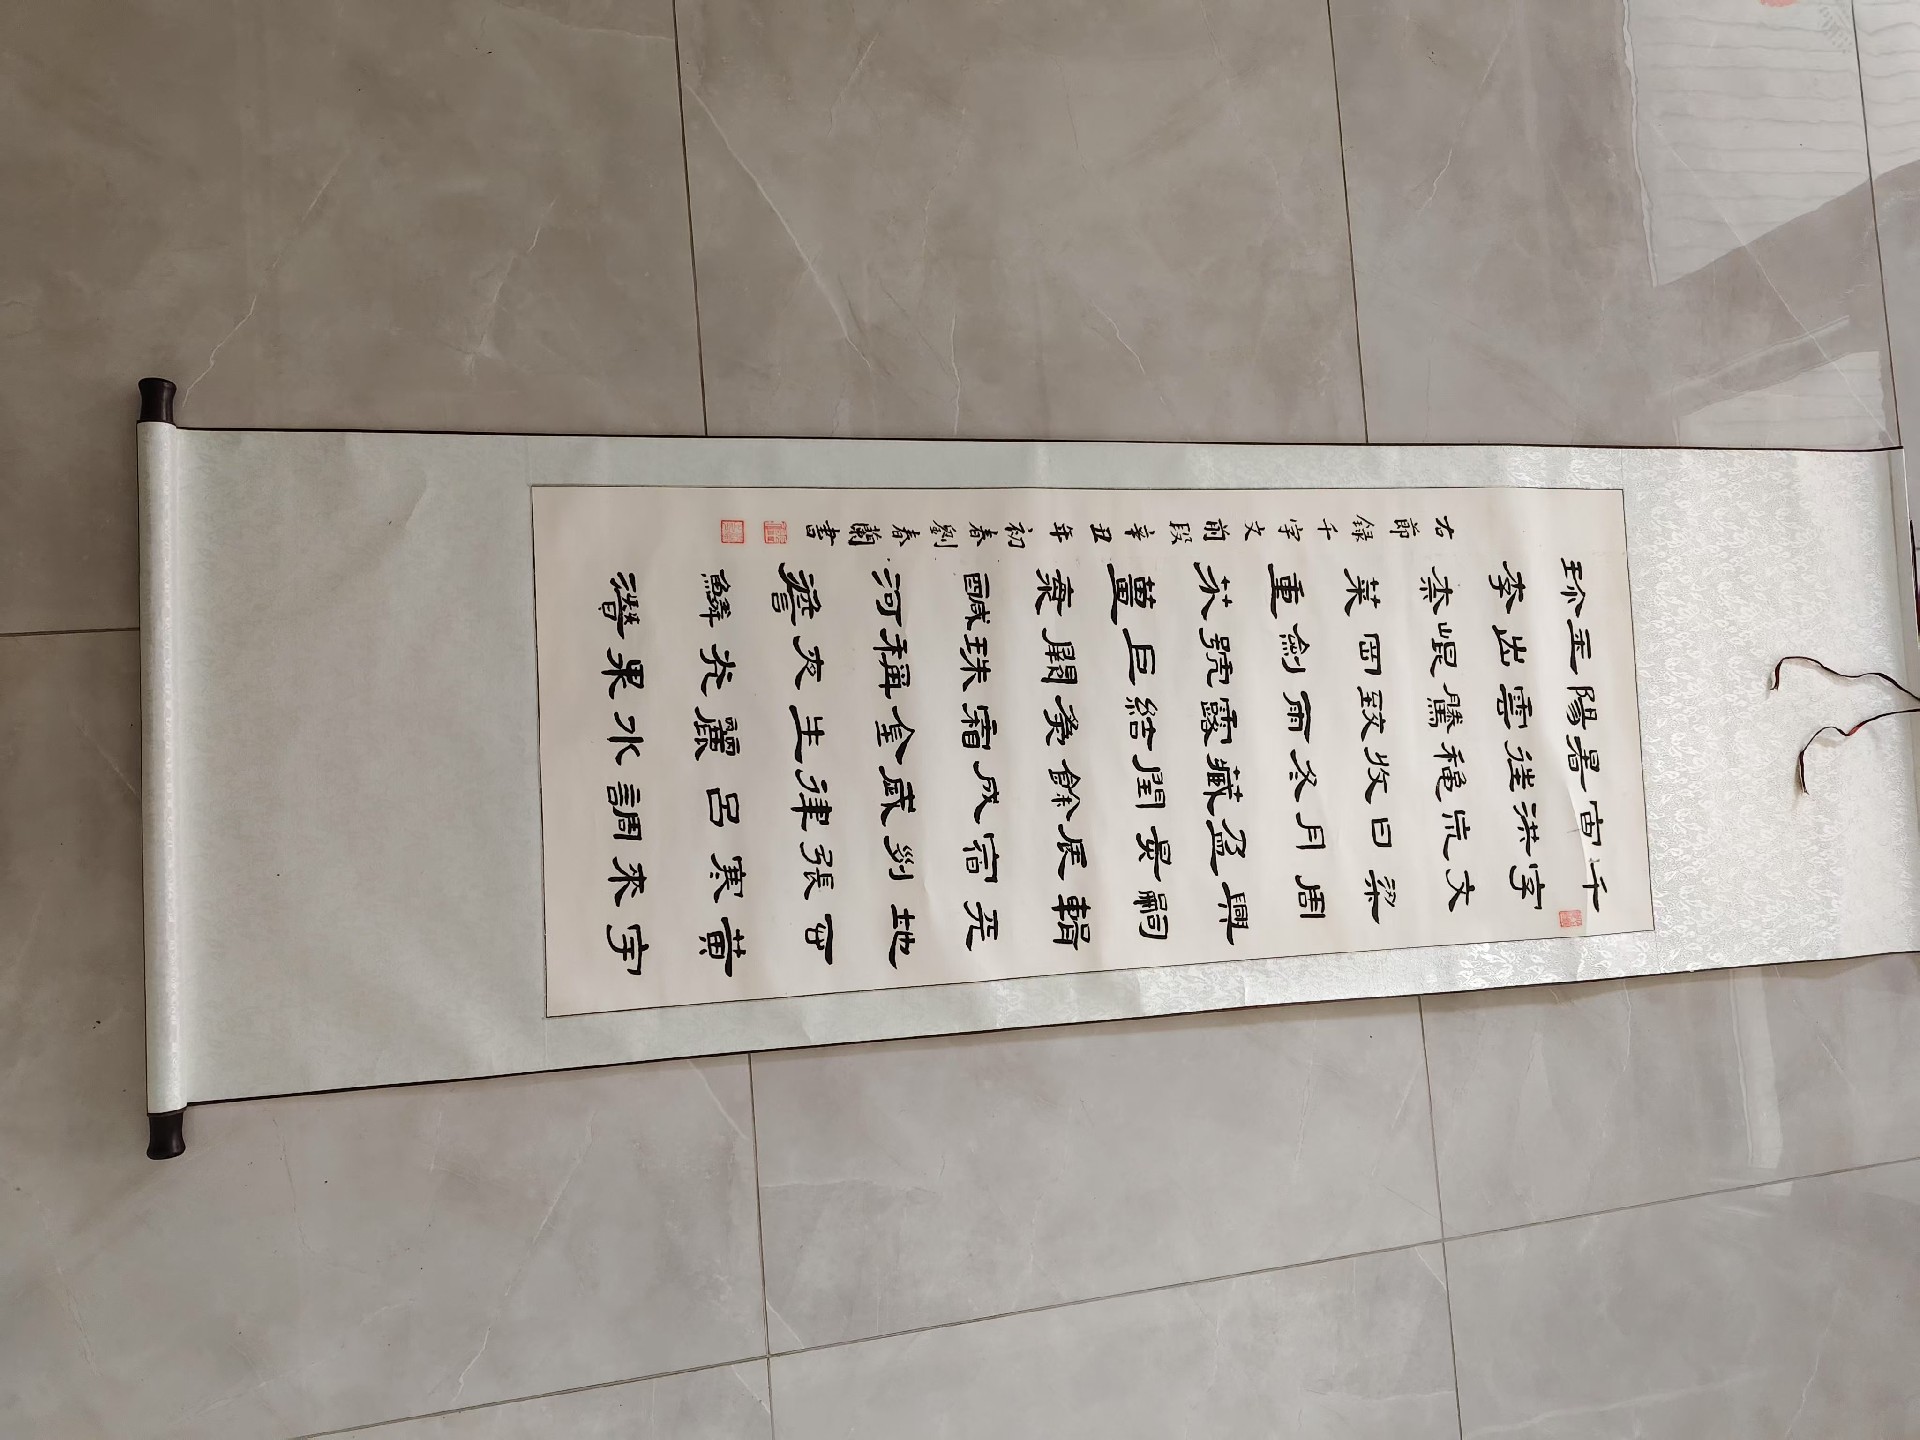 千字文梁周興嗣輯天地玄黃宇
宙洪荒日月盈昃辰宿列張寒來
暑往秋收冬藏閏餘成歲律呂調
陽雲騰致雨露結爲霜金生麗水
玉出崐岡劍號巨闕珠稱夜光果
珍李柰菜重芥薑海鹹河淡鱗潛
右節録千字文前段辛丑年初春劉春蘭書